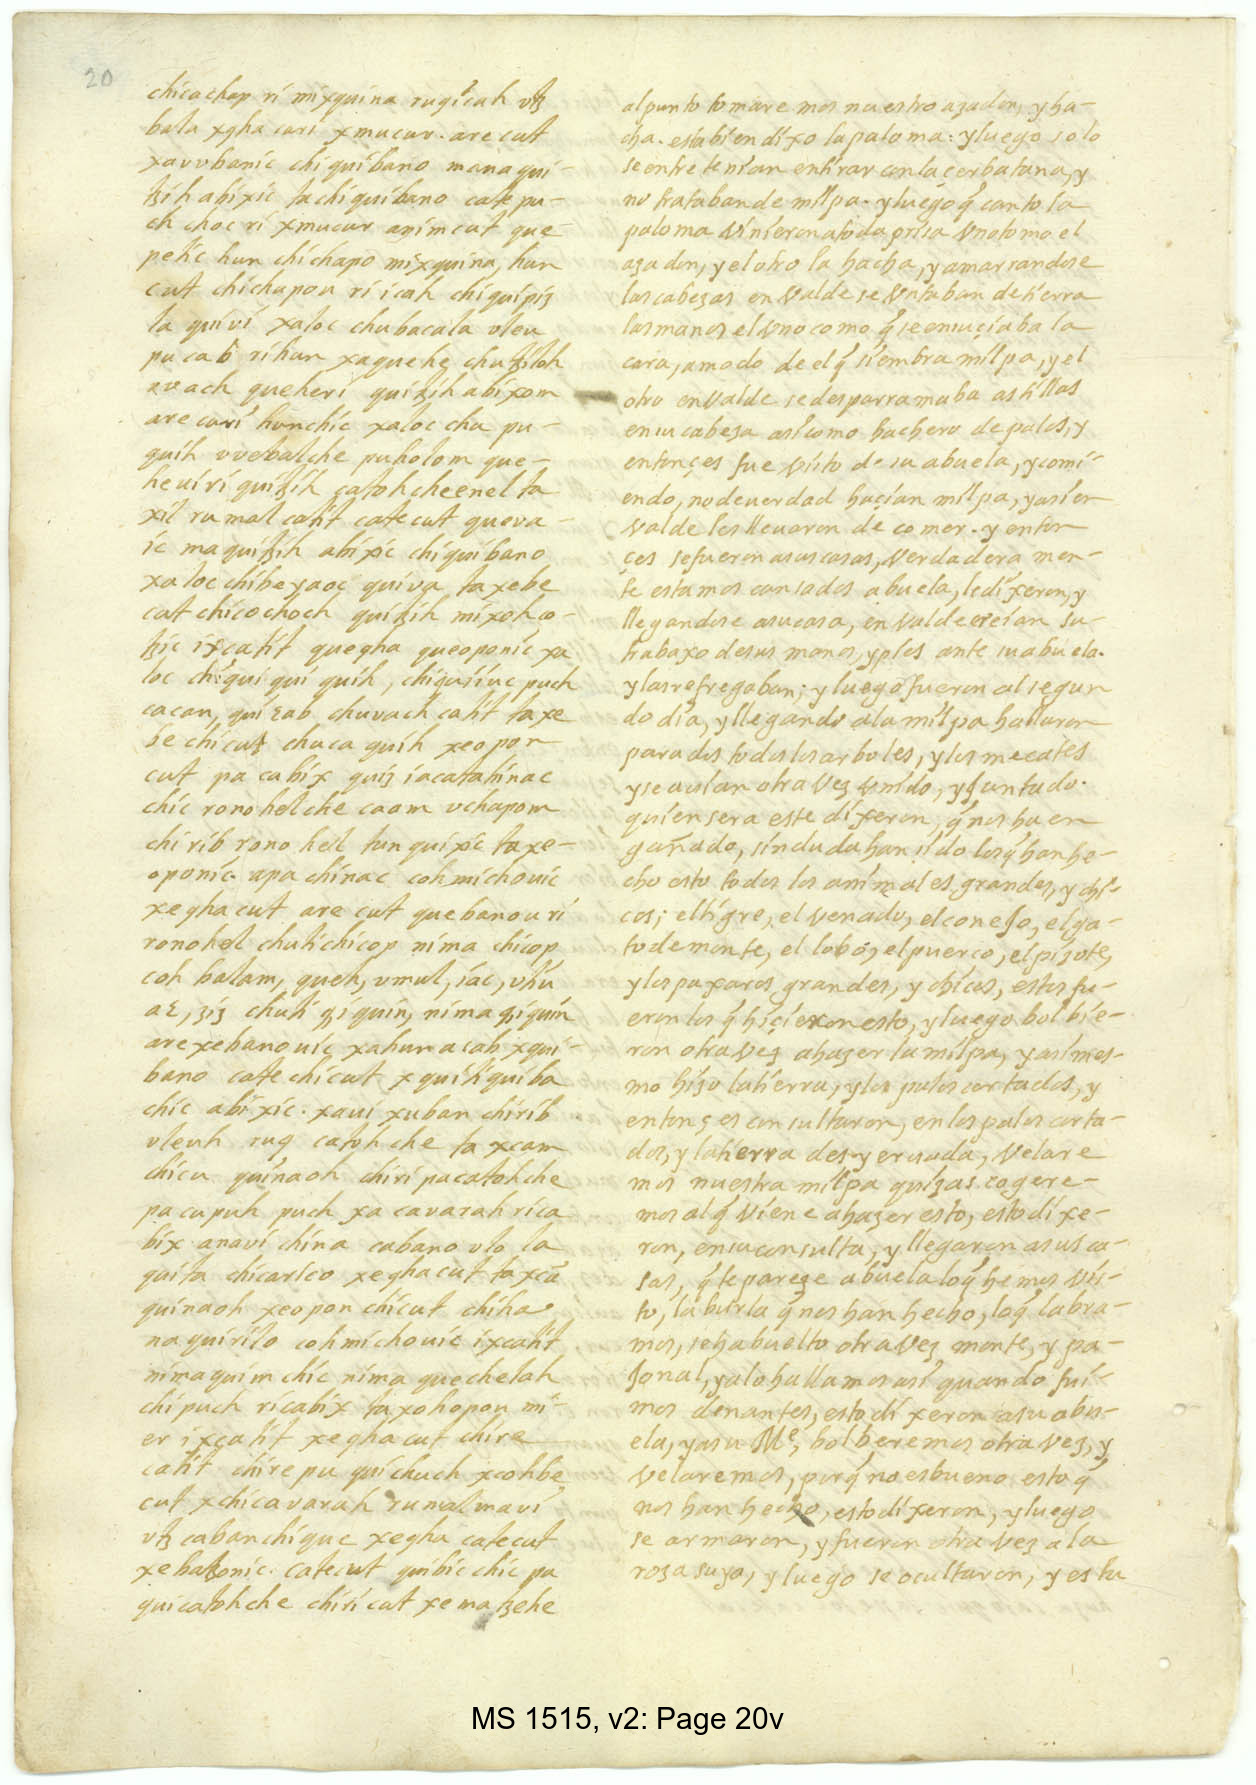 20
chicachap ri mixquina ruqicah vtz
bala xgha cari xmucur. are cut
xavvbanic chiquibano mana qui-
tzih abixic ta chiquibano catepu-
ch choc ri xmucur anim cut que-
petic hun chichapo mixquina, hun
cut chichapou ri icah chiquipiz
la quivi xaloc chubacala uleu
pu cab rihun xaquehe chutziloh
uvach queheri quitzih abixom
are curi hunchic xaloc cha pu-
quih vvebalche puholom que-
heuiri quitzih catohcheenel ta
xil rumal catit catecut queva-
ic maquitzih abixic chiquibano
xaloc chibeyaoc quiva, taxebe
cut chicochoch quitzih mixohco-
tzic ixcatit quegha queoponic xa
loc chiqui qui quih, chiquiiuc puch
cacan, quicab chuvach catit taxe
be chicutz chaca quih xeopon
cut pa cabix quiz iacatahinac
chic ronohelche caam uchapom
chirib ronohel tunquixic taxe-
oponic apachinac cohmichouic
xegha cut are cut quebanouri
ronohel chutichicop nima chicop
coh balam, queh, umul, iac, utiu
ac, ziz chuti qiquin, nima qiquin
arexebanouic xahun acab xqui-
bano catechicut xquitiquiba
chic abixic. xavi xuban chirib
uleuh ruq catohche ta xcam
chicu quinaoh chiri pacatohche
pacupuh puch xa cavarah rica
bix anavi china cabano ulo la
quita chicarico xegha cut taxca
quinaoh xeopon chicut chiha
naquirilo cohmichouic ixcatit
nimaquim chic nima quechelah
chipuch ricabix taxohopon mi-
er ixcatit xegha cut chire
catit chirepu quichuch xcohbe
cut xchicavarah rumalmavi
utz cabanchique xegha catecut
xebatzonic. catecut quibic chic pa
quicatohche chiri cut xematzehe
al punto tomaremos nuestro açadon, y ha-
cha. esta bien dixo la paloma: y luego solo
se entretenian en tirar con la çerbatana, y
no trataban de milpa. y luego q̃ canto la
paloma vinieron a toda prisa vno tomo el
açadon, y el otro la hacha, y amarrandose
las cabezas en valde se vntaban de tierra
las manos el vno como q̃ se ensuçiaba la
cara, a modo de el q̃ siembra milpa, y el
otro en valde se desparramaba astillas
en su cabeza asi como hachero de palos, y
entonçes fue visto de su abuela, y comi-
endo, no de uerdad haçian milpa, y asi en
valde les lleuaron de comer. y enton
çes se fueron a sus casas, verdadera men-
te estamos cansados abuela, le dixeron, y
llegandose a su casa, en valde ereian su-
trabaxo de sus manos, y ples ante su abuela.
y las refregaban; y luego fueron al segun
do dia, y llegando a la milpa hallaron
parados todos los arboles, y los mecates
y se auian otra vez vnido, y juntado.
quien sera este dixeron, q̃ nos ha en
gañado, sin duda han sido los q̃ han he-
cho esto todos los animales grandes, y chi-
cos; el tigre, el venado, el conejo, el ga-
to de monte, el lobo, el puerco, el pizote,
y los paxaros grandes, y chicos, estos fu-
eron los q̃ hiçieron esto, y luego bolbie-
ron otra vez a hazer la milpa, y asi mes-
mo hizo la tierra, y los palos cortados, y
entonçes consultaron, en los palos corta-
dos, y la tierra des-yeruada, velare
mos nuestra milpa quizas cogere-
mos al q̃ viene a hazer esto, esto dixe-
ron, en su consulta, y llegaron a sus ca-
sas, q̃ te pareze abuela lo q̃ hemos vis-
to, la burla q̃ nos han hecho, lo q̃ labra-
mos, se ha buelto otra vez monte, y pa-
jonal, y a lo hallamos asi quando fui-
mos denantes, esto dixeron a su abu-
ela, y a su Me, bolberemos otra vez, y
velaremos, porq̃ no es bueno esto q̃
nos han hecho, esto dixeron, y luego
se armaron, y fueron otra vez a la
roza suya, y luego se ocultaron, y estu
MS 1515, v2: Page 20v